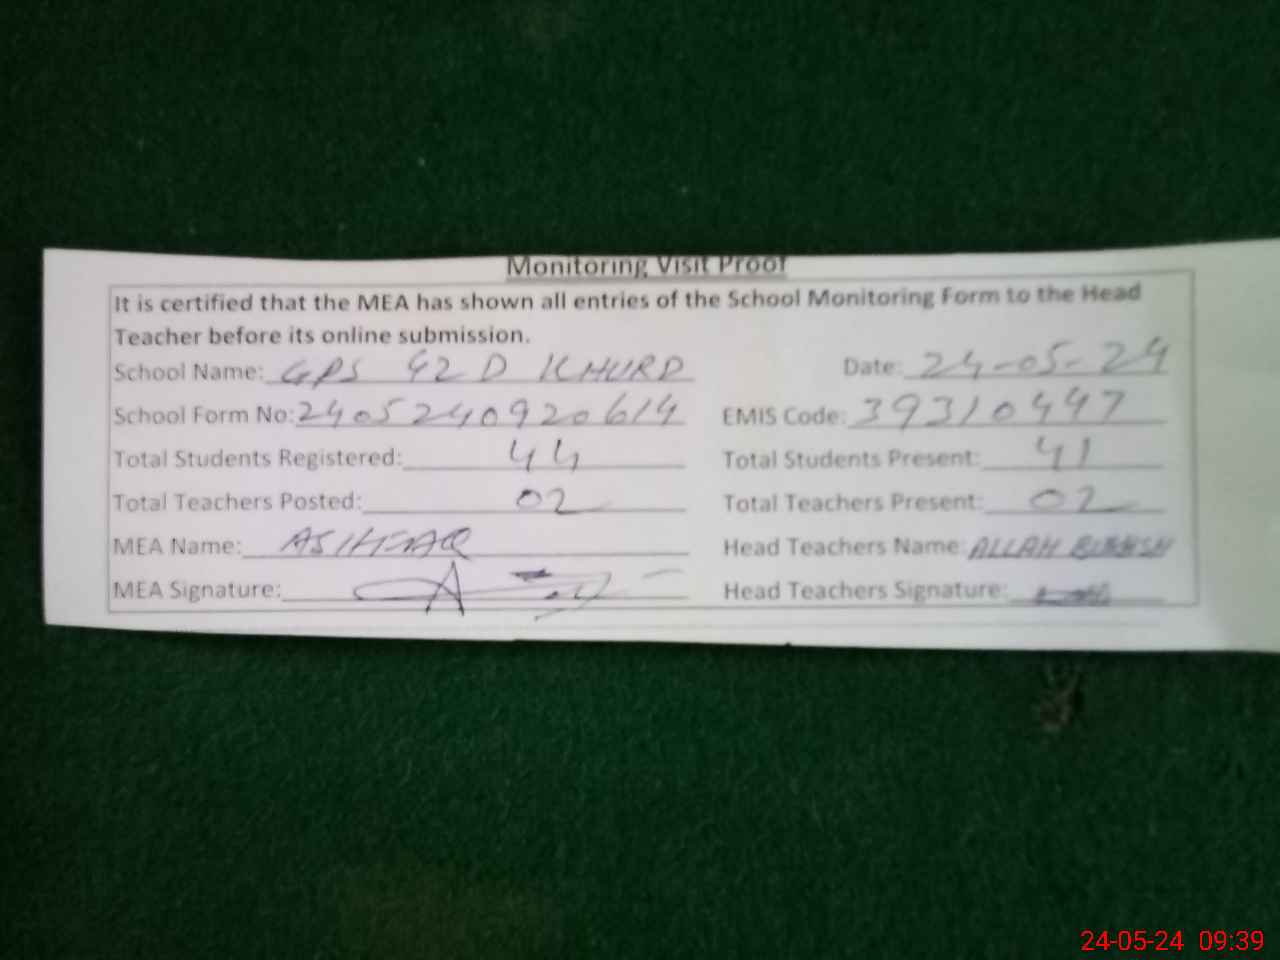 Monitoring Visit Proof
It is certified that the MEA has shown all entries of the School Monitoring Form to the Head
Teacher before its online submission.
School Name: GPS 42 D KHURD Date: 24-05-24
School Form No: 2405240920614 EMIS Code: 39310447
Total Students Registered: 44 Total Students Present: 41
Total Teachers Posted: 02 Total Teachers Present: 02
MEA Name: ASHFAQ Head Teachers Name: ALLAH
MEA Signature: Head Teachers Signature:
24-05-24 09:39